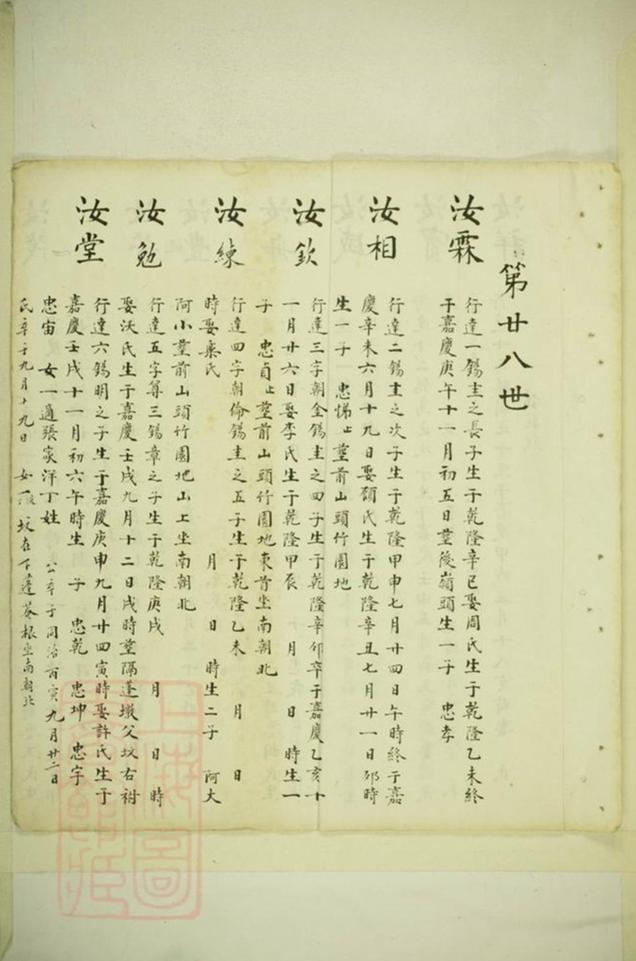 第廿八世
汝霖
行達一錫圭之長子生于乾隆辛巳娶周氏生于乾隆乙未終
于嘉慶庚午十一月初五日塟後嶺頭生一子　忠孝
汝相
行達二錫圭之次子生于乾隆甲申七月廿四日午時終于嘉
慶辛未六月十九日娶顧氏生于乾隆辛丑七月廿一日卯時
生一子　忠悌　塟前山頭竹園地
汝欽
行達三字朝金錫圭之四子生于乾隆辛卯卒于嘉慶乙亥十
一月廿六日娶李氏生于乾隆甲辰　月　日　時生一
子　忠貞　塟前山頭竹園地東首坐南朝北
汝練
行達四字朝倫錫圭之五子生于乾隆乙未　月　日
時娶氏　月　日　時生二子　阿大
阿小塟前山頭竹園地山上坐南朝北
汝勉
行達五字尊三錫章之子生于乾隆庚戌　月　日時
娶沃氏生于嘉慶壬戌九月十二日戌時塟隔蓬墩父坟右祔
汝堂
行達六錫明之子生于嘉慶庚申九月廿四寅時娶許氏生于
嘉慶壬戌十一月初六午時生　子　忠乾　忠坤　忠宇
忠宙　女一適張家洋丁姓　公卒于同治丙寅九月廿二日
氏卒于九月十九日　坟在下蓬根坐南朝北
上海圖